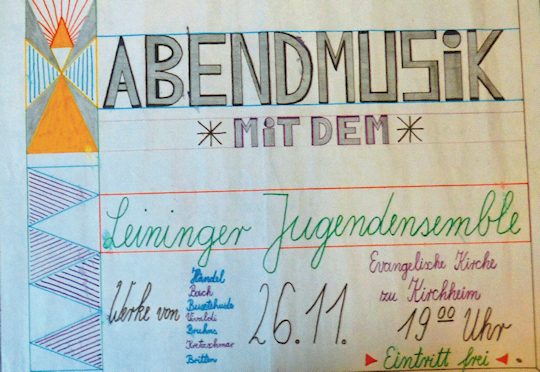 ABENDMUSiK
* MiT DEM *
Leininger Jugendensemble
Werke von
Händel
Bach
Buxtehude
Vivaldi
Bruhns
Kretzschmar
Britten
26.11.
Evangelische Kirche
zu Kirchheim
19 00 Uhr
Eintritt frei